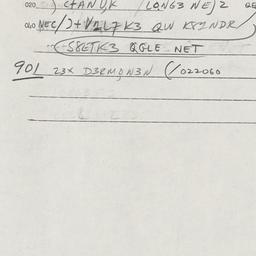 020 ) C+ANUK / LONG3 NE)2
040 NEC/)+V2L7K3 QW K8INDR/
(S8ETK3 QGLE NET
901 23X D3RMQN3N (/022060